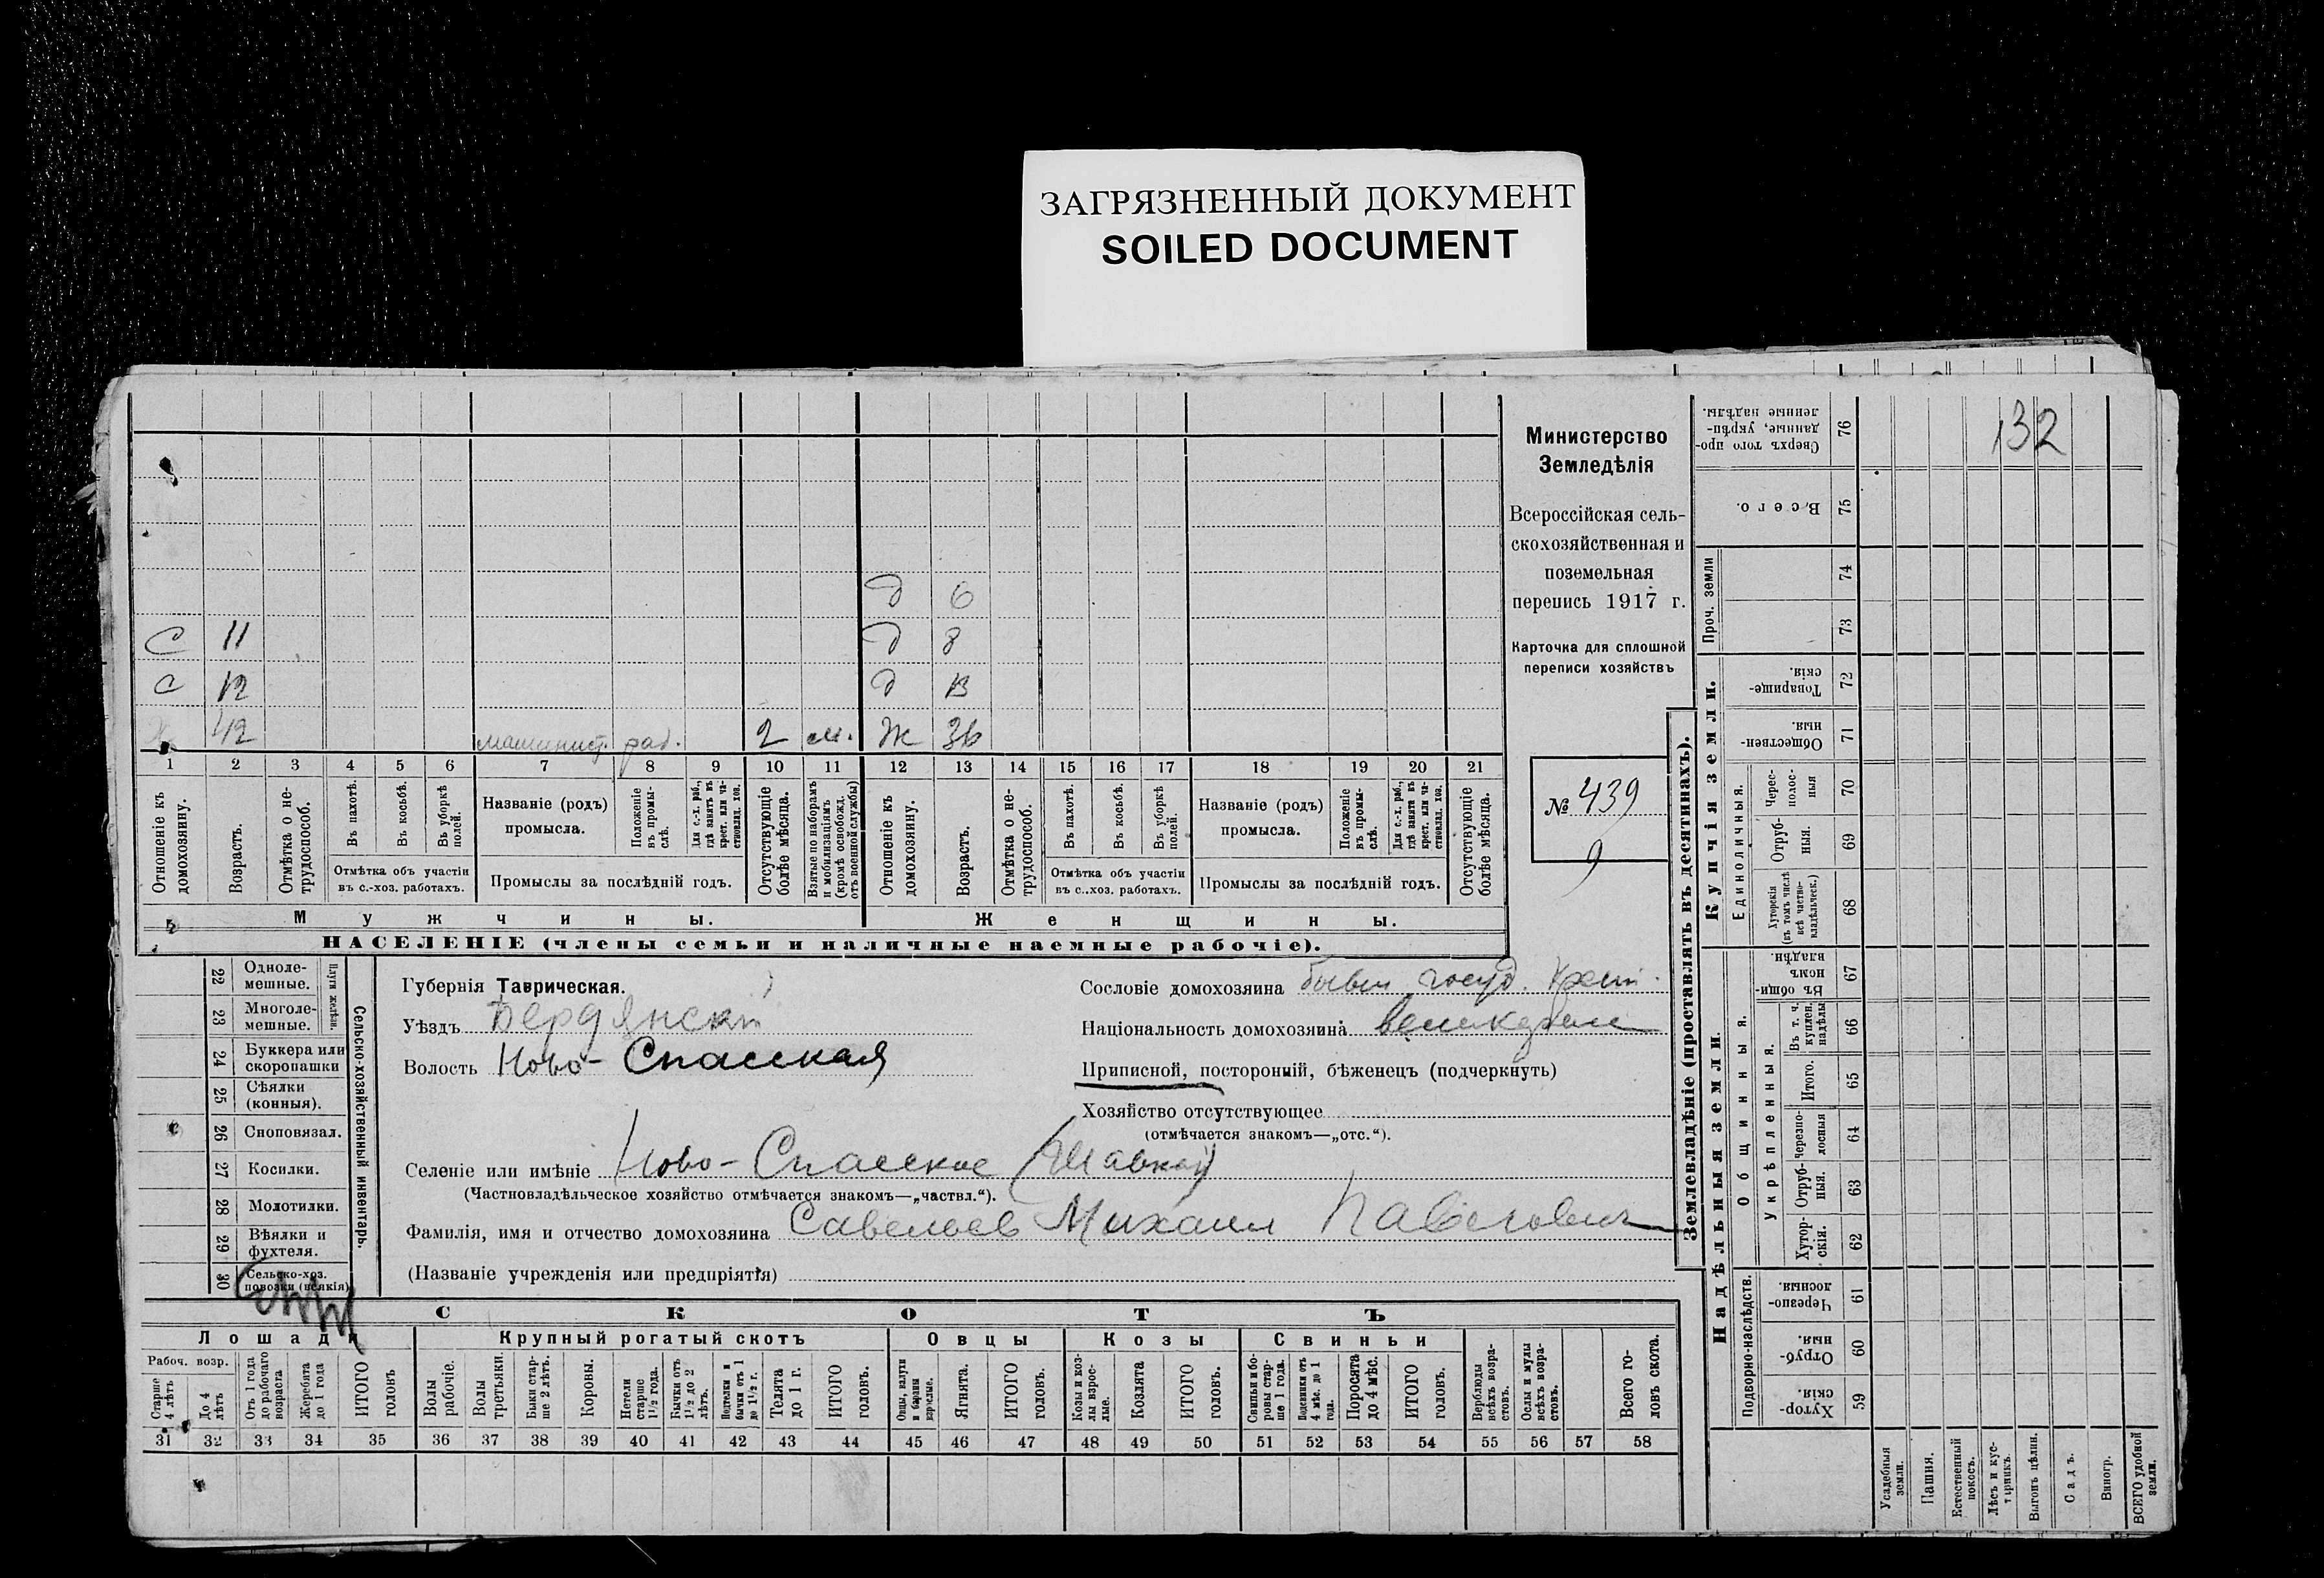 ЗАГРЯЗНЕННЫЙ ДОКУМЕНТ
SOILED DOCUMENT
132
Министерство
Земледѣлія
Всероссійская сель-
скохозяйственная и
поземельная
перепись 1917 г.
Карточка для сплошной
переписи хозяйствъ
№ 439
9
д 6
С 11 д 8
С 12 д 13
42 машинист. раб. 2 м. Ж 36
1 2 3 4 5 6 7 8 9 10 11 12 13 14 15 16 17 18 19 20 21
Отношеніе къ домохозяину.
Возрастъ.
Отмѣтка о не-трудоспособ.
Въ пахотѣ.
Въ косьбѣ.
Въ уборкѣ полей.
Отмѣтка объ участіи
въ с.-хоз. работахъ.
Названіе (родъ)
промысла.
Положеніе въ промы-слѣ.
Для с.-х. раб., гдѣ занятъ въ крест. или ча-стновлад. хоз.
Промыслы за послѣдній годъ.
Отсутствующіе болѣе мѣсяца.
Взятые по наборамъ и мобилизаціямъ (кромѣ освобожд. отъ военной службы)
Отношеніе къ домохозяину.
Возрастъ.
Отмѣтка о не-трудоспособ.
Въ пахотѣ.
Въ косьбѣ.
Въ уборкѣ полей.
Отмѣтка объ участіи
въ с..хоз. работахъ.
Названіе (родъ)
промысла.
Положеніе въ промы-слѣ.
Для с.-х. раб., гдѣ занята въ крест. или ча-стновлад. хоз.
Промыслы за послѣдній годъ.
Отсутствующіе болѣе мѣсяца.
Мужчины. Женщины.
НАСЕЛЕНІЕ (члены семьи и наличные наемные рабочіе).
22 Одноле-мешные.
23 Многоле-мешные.
Плуги желѣзн.
24 Буккера или скоропашки
25 Сѣялки (конныя).
26 Сноповязал.
27 Косилки.
28 Молотилки.
29 Вѣялки и фухтеля.
30 Сельско-хоз. повозки (всякія)
Сельско-хозяйственный инвентарь.
Губернія Таврическая.
Уѣздъ Бердянскій
Волость Ново-Спасская
Селеніе или имѣніе Ново-Спасское (Шавкай)
(Частновладѣльческое хозяйство отмѣчается знакомъ—„частвл.“).
Фамилія, имя и отчество домохозяина Савельев Михаил Павлович
(Названіе учрежденія или предпріятія)
Сословіе домохозяина бывш. госуд. крест.
Національность домохозяина великорос
Приписной, посторонній, бѣженецъ (подчеркнуть)
Хозяйство отсутствующее
(отмѣчается знакомъ—„отс.“).
СКОТЪ
Лошади Крупный рогатый скотъ Овцы Козы Свиньи
Рабоч. возр.
Старше 4 лѣтъ
До 4 лѣтъ
Отъ 1 года до рабочаго возраста
Жеребята до 1 года
ИТОГО головъ
Волы рабочіе.
Волы третьяки.
Быки стар-ше 2 лѣтъ.
Коровы.
Нетели старше 1 1/2 года.
Бычки отъ 1 1/2 до 2 лѣтъ.
Подтелки и бычки отъ 1 до 1 1/2 г.
Телята до 1 г.
ИТОГО головъ.
Овцы, валухи и бараны взрослые.
Ягнята.
ИТОГО головъ.
Козы и коз-лы взрос-лые.
Козлята
ИТОГО головъ.
Свиньи и бо-ровы стар-ше 1 года.
Подсвинки отъ 4 мѣс. до 1 года.
Поросята до 4 мѣс.
ИТОГО головъ.
Верблюды всѣхъ возра-стовъ.
Ослы и мулы всѣхъ возра-стовъ.
Всего го-ловъ скота.
31 32 33 34 35 36 37 38 39 40 41 42 43 44 45 46 47 48 49 50 51 52 53 54 55 56 57 58
Землевладѣніе (проставлять въ десятинахъ).
Надѣльныя земли. Купчія земли. Проч. земли
Подворно-наслѣдств.
Общинныя.
Укрѣпленныя.
Единоличныя.
76 Сверхъ того про-данные, укрѣп-ленные надѣлы.
75 Всего.
74
73
72 Товарище-скія.
71 Обществен-ныя.
70 Черес-полос-ныя
69 Отруб-ныя.
68 Хуторскія (въ томъ числѣ всѣ частно-владѣльческ.)
67 Въ общи-номъ владѣн.
66 Въ т. ч. куплен. надѣлы
65 Итого.
64 Черезпо-лосныя
63 Отруб-ныя.
62 Хутор-скія.
61 Черезпо-лосныя.
60 Отруб-ныя.
59 Хутор-скія.
Усадебныя земли.
Пашня.
Естественный покосъ.
Лѣсъ и кус-тарникъ.
Выгонъ цѣлин.
Садъ.
Виногр.
ВСЕГО удобной земли.